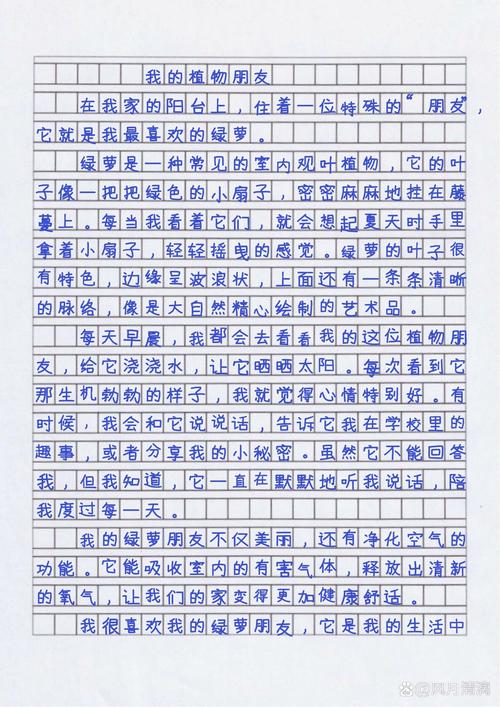 我的植物朋友
在我家的阳台上，住着一位特殊的“朋友”，
它就是我最喜欢的绿萝。
绿萝是一种常见的室内观叶植物，它的叶
子像一把把绿色的小扇子，密密麻麻地挂在藤
蔓上。每当我看着它们，就会想起夏天时手里
拿着小扇子，轻轻摇曳的感觉。绿萝的叶子很
有特色，边缘呈波浪状，上面还有一条条清晰
的脉络，像是大自然精心绘制的艺术品。
每天早晨，我都会去看看我的这位植物朋
友，给它浇浇水，让它晒晒太阳。每次看到它
那生机勃勃的样子，我就觉得心情特别好。有
时候，我会和它说说话，告诉它我在学校里的
趣事，或者分享我的小秘密。虽然它不能回答
我，但我知道，它一直在默默地听我说话，陪
我度过每一天。
我的绿萝朋友不仅美丽，还有净化空气的
功能。它能吸收室内的有害气体，释放出清新
的氧气，让我们的家变得更加健康舒适。
我很喜欢我的绿萝朋友，它是我的生活中
@风月清漓